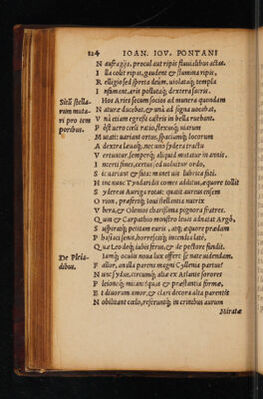 124 IOAN. IOV. PONTANI
N aufragos, procul aut ripis fluuialibus actos.
I lla colit ripas, gaudent & flumina ripis,
R elligio sed spreta deûm, uiolataq; templa
I nfament, aris pollutaq; dextera sacris.
Sitū stella-
rum muta-
ri pro tem
poribus.
Hos Aries secum socios ad munera quondam
N autas ducebat, & unà ad signa uocabat,
V nà etiam egressa castris in bella ruebant.
P ost uero uersis ratio, flexusq; uiarum
M utati: uariant ortus, spaciumq; locorum
A dextra leuaq;, nec uno sydera tractu
V ertuntur, semperq; aliquid mutatur in annis.
I ncerti fines, certus sed uoluitur ordo,
S ic uariant & fata: manet uis lubrica fati.
H inc nunc Tyndaridis comes additus, æquore tollit
S ydereas Auriga rotas: quatit aureus ensem
O rion, præfertq; Ioui stellantia nutrix
V bera, & Olenius charissima pignora fratres.
Q uin & Carpathio monstro leuis aduolat Argo,
S uspiratq; petitam euris, atq; æquore prædam
P hasiacis senis, horrescitq; incendia late,
Q uæ Leo deq; iubis ferus, & de pectore fundit.
De Pleia-
dibus.
Iamq; oculis noua lux offert se nate uidendam.
F allor, an illa parens magni Cyllenia partus?
N unc sydus, circumq; aliæ ex Atlante sorores
P leioneq; micant: squæ & præstantia firmæ,
E t diuorum amor, & clari decora alta parentis
N obilitant cœlo, referuntq; in crinibus aurum
Miratæ